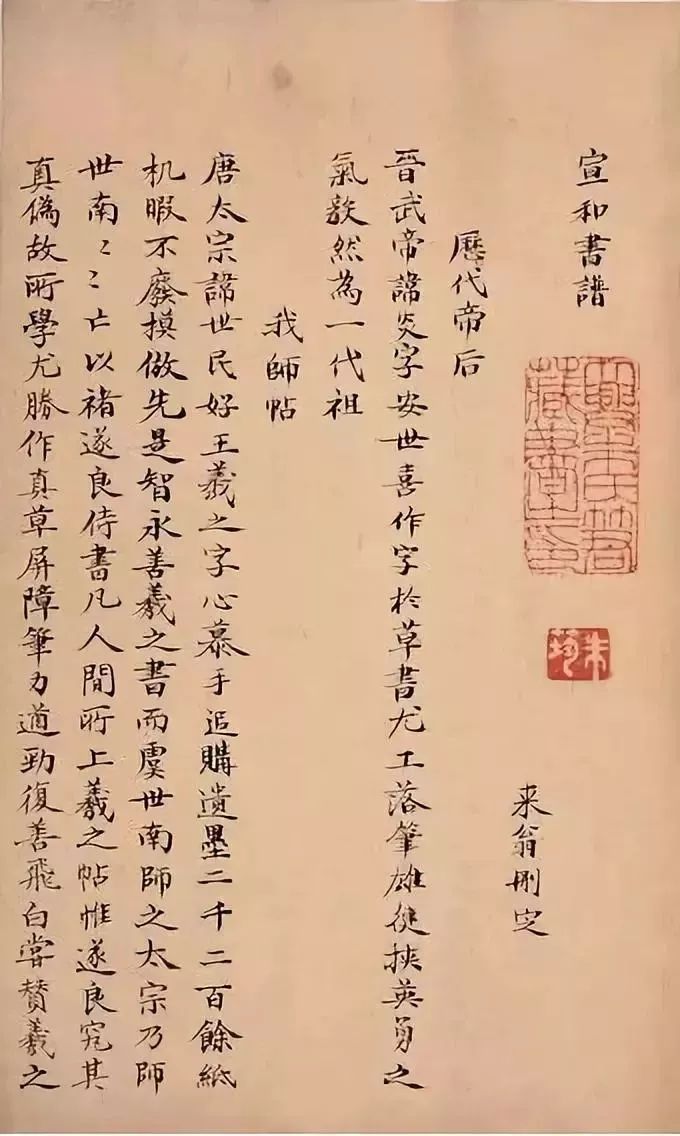 宣和書譜
来翁刪定
歷代帝后
晉武帝諱炎字安世喜作字於草書尤工落筆雄健挾英勇之
氣毅然為一代祖
我師帖
唐太宗諱世民好王羲之字心慕手追購遺墨二千二百餘紙
机暇不廢摸倣先是智永善羲之書而虞世南師之太宗乃師
世南〻〻亡以褚遂良侍書凡人間所上羲之帖惟遂良究其
真偽故所學尤勝作真草屏障筆力遒勁復善飛白嘗贊羲之